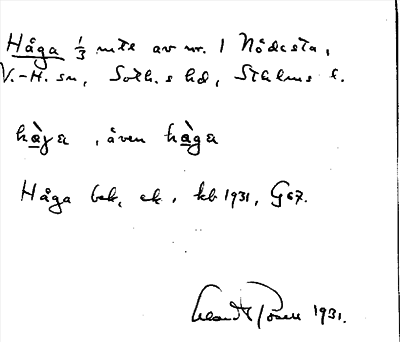 Håga 1/3 mtl av nr. 1 Nådesta,
V.-H. sn, Soth.s hd, Sthlms l.
hàga , även hàga
Håga bek, ek, kb 1931, G 67.
1931.